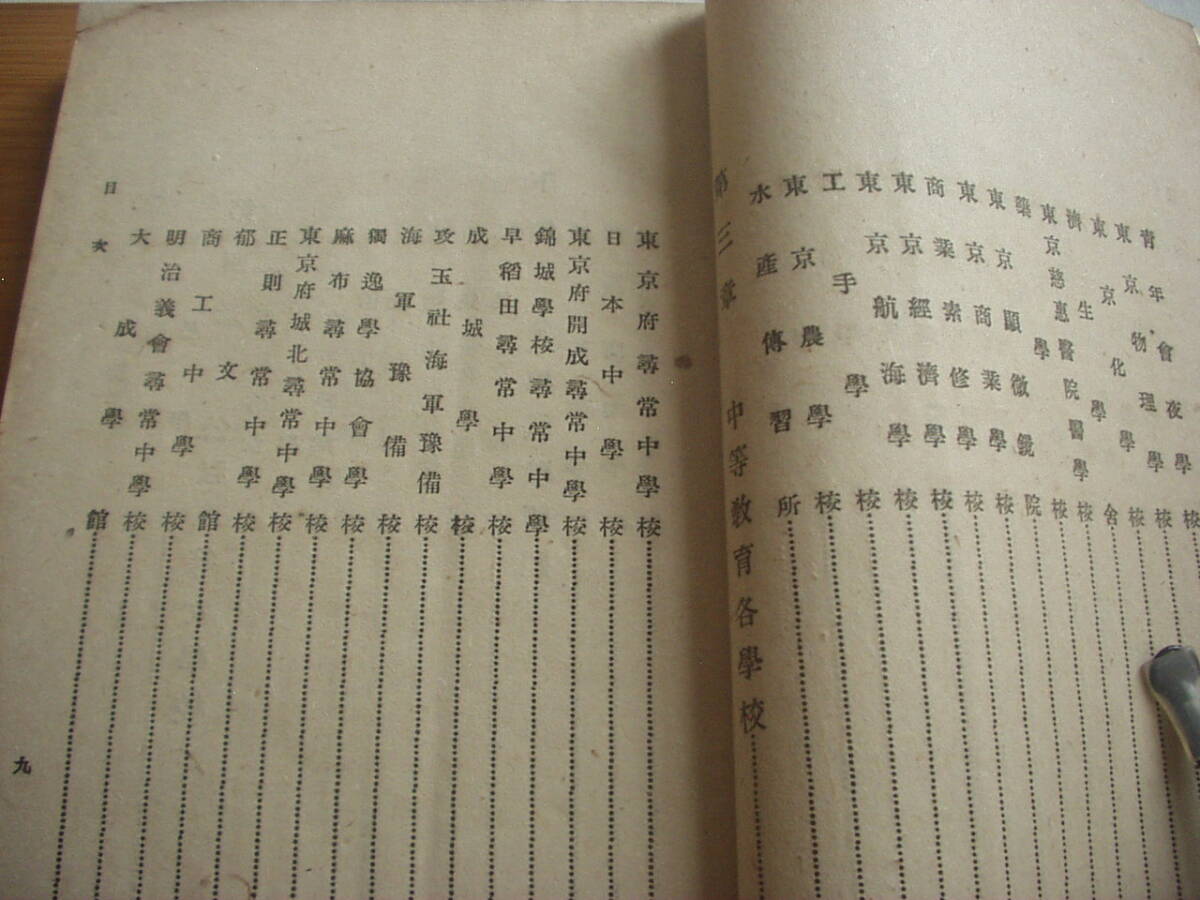 青年會夜學校
東京物理學校
東京化學校
濟生學舍
東京慈惠醫院醫學校
藥學校
東京顯微鏡院
東京商業學校
商業素修學校
東京經濟學校
東京航海學校
工手學校
東京農學校
水產傳習所
第三章 中等教育各學校
東京府尋常中學校
日本中學校
東京府開成尋常中學校
錦城學校尋常中學
早稻田尋常中學校
成城學校
攻玉社海軍豫備校
海軍豫備校
獨逸學協會學校
麻布尋常中學校
東京府城北尋常中學校
正則尋常中學校
郁文館
商工中學校
明治義會尋常中學校
大成學館
目次
九